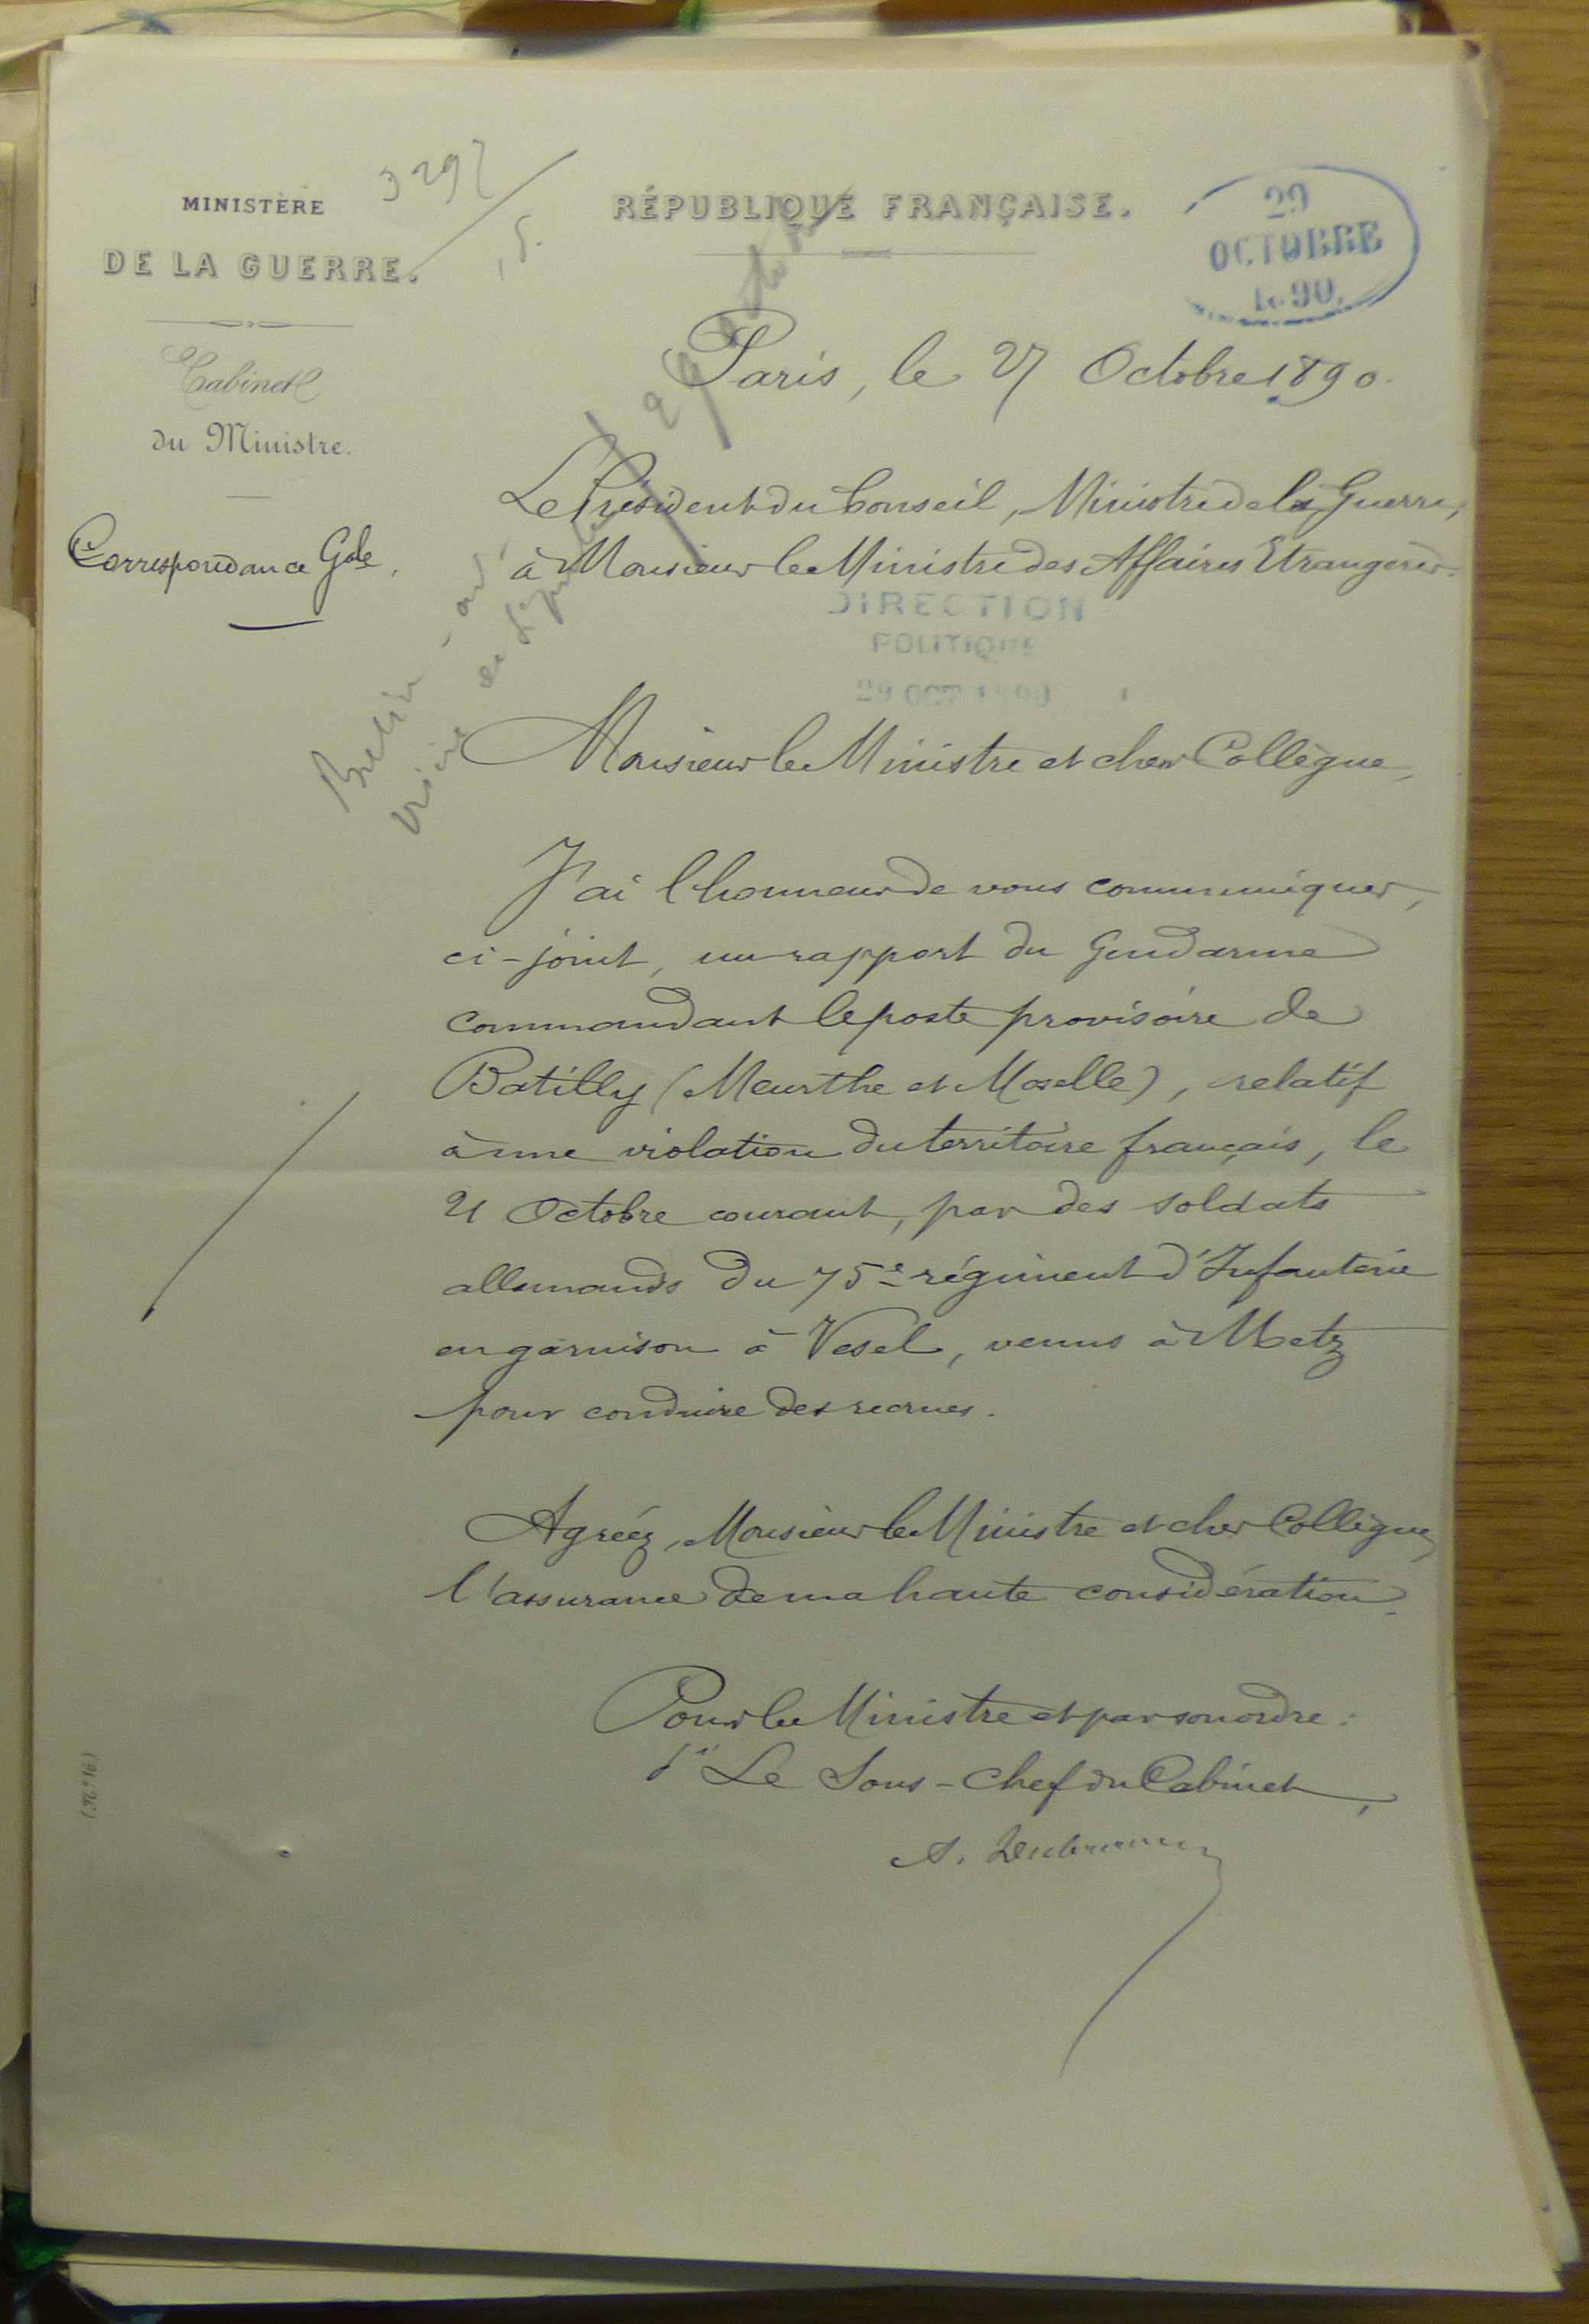 MINISTÈRE
DE LA GUERRE.
Cabinet
du Ministre.
Correspondance Gale.
3292
RÉPUBLIQUE FRANÇAISE.
29
OCTOBRE
1890.
Paris, le 27 Octobre 1890.
Le Président du Conseil, Ministre de la Guerre,
à Monsieur le Ministre des Affaires Etrangères.
DIRECTION
POLITIQUE
29 OCT 1890
Berlin
Monsieur le Ministre et cher Collègue,
J'ai l'honneur de vous communiquer,
ci-joint, un rapport du Gendarme
commandant le poste provisoire de
Batilly (Meurthe et Moselle), relatif
à une violation du territoire français, le
21 Octobre courant, par des soldats
allemands du 75e régiment d'Infanterie
en garnison à Vesel, venus à Metz
pour conduire des recrues.
Agréez, Monsieur le Ministre et cher Collègue,
l'assurance de ma haute considération.
Pour le Ministre et par son ordre:
Le Sous-chef du Cabinet,
(N° 16)